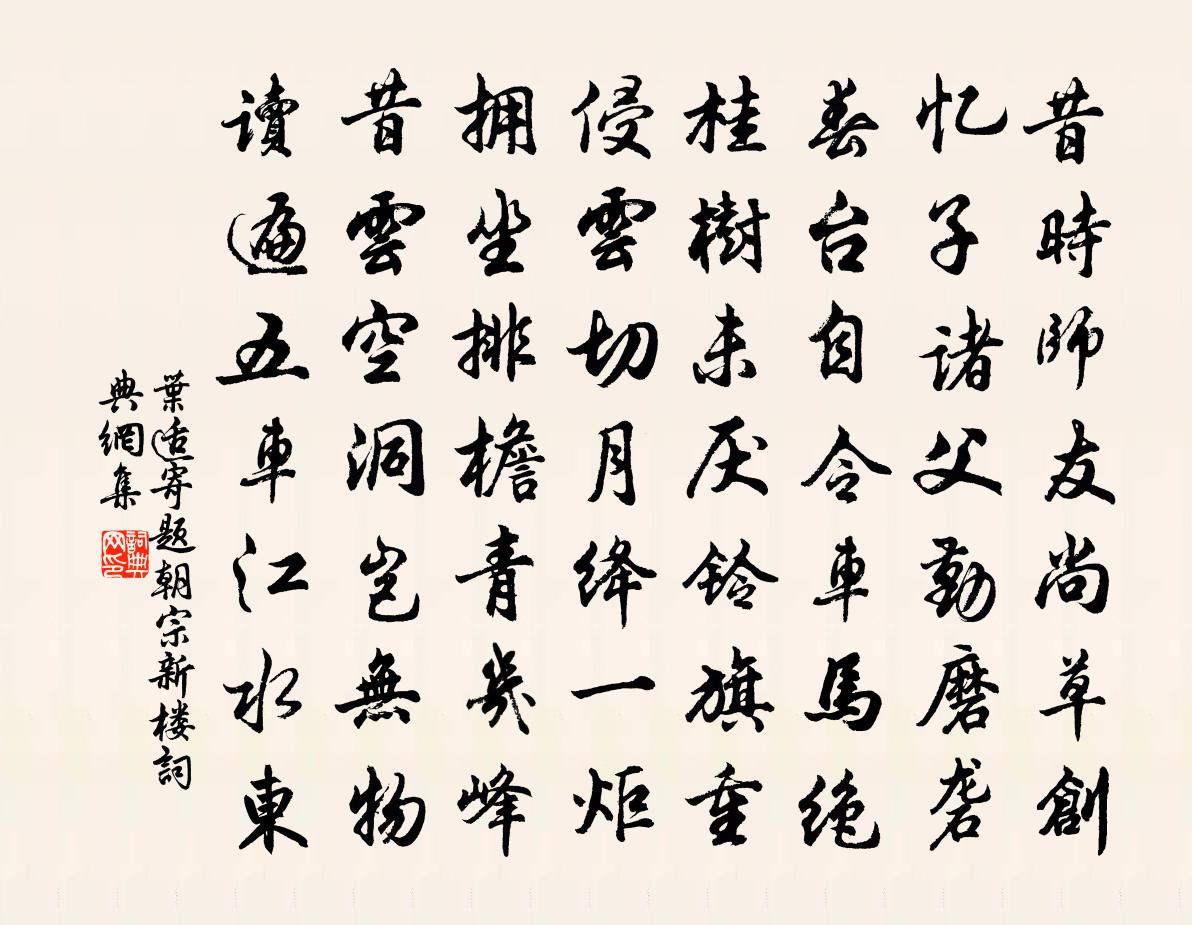 昔時師友尚草創
忆子諸父勤磨砻
春台自令車馬絶
桂樹未厌鈴旗重
侵雲切月絳一炬
拥坐排檐青幾峰
昔雲空洞岂無物
讀遍五車江水東
葉适寄題朝宗新楼詞
典網集
詞典
网印